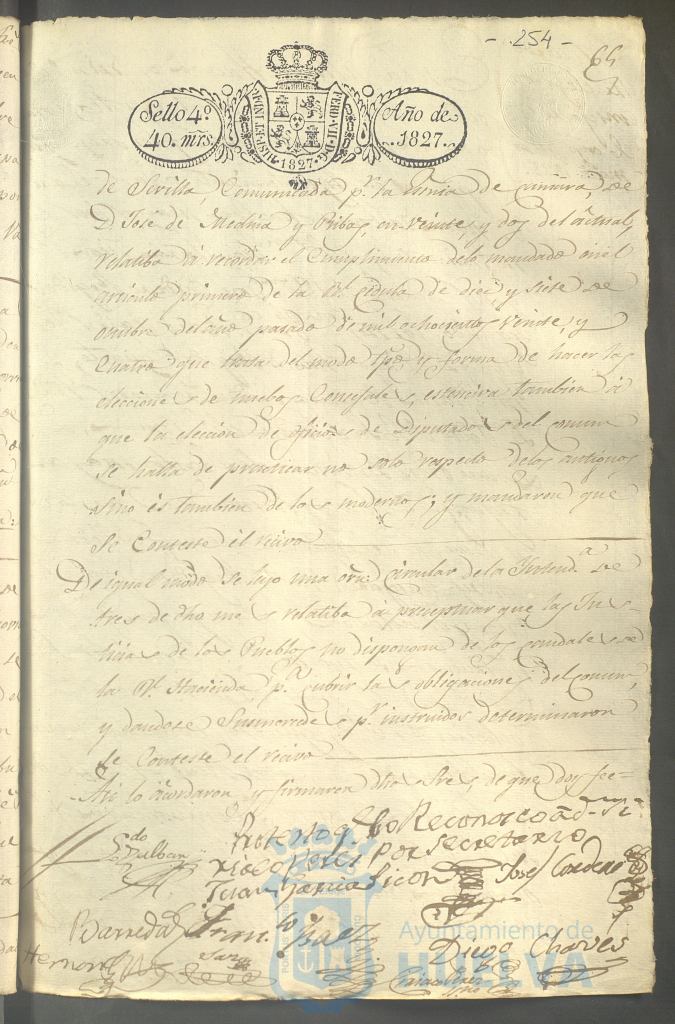 - 254 -
65
Sello 4º
40. mrs.
HISP. ET IND. REX
FERD. VII. D. G.
1827
Año de
1827.
de Sevilla, Comunicada pr. la misma de primera, de
D. José de Medina y Ribas, en veinte y dos del actual,
relatiba á recordar el Cumplimiento delo mandado en el
articulo primero de la Rl. Cedula de diez y siete de
octubre del año pasado de mil ochocientos veinte, y
Cuatro que trata del modo tpo. y forma de hacer las
elecciones de nuebos Concejales, estensiva tambien á
que la elección de oficios de Diputados del comun
se halla de practicar no solo respecto delos antiguos
sino és tambien de los modernos; y mandaron que
se Conteste el recivo
De igual modo se leyo una orn. circular de la Intenda. de
tres de dho mes relatiba á preceptuar que las Jus-
ticias de los Pueblos no dispongan de los caudales de
la Rl. Hacienda pa. cubrir las obligaciones del comun,
y dandose sus mercedes pr. instruidos determinaron
se Conteste el recivo
Asi lo acordaron y firmaron dhos Sres, de que doy fee=
Protesto q. no Reconosco á d.
por Secretario
Juan Garcia Picon
José Cordero
Barreda
Diego Chaves
Ayuntamiento de
HUELVA